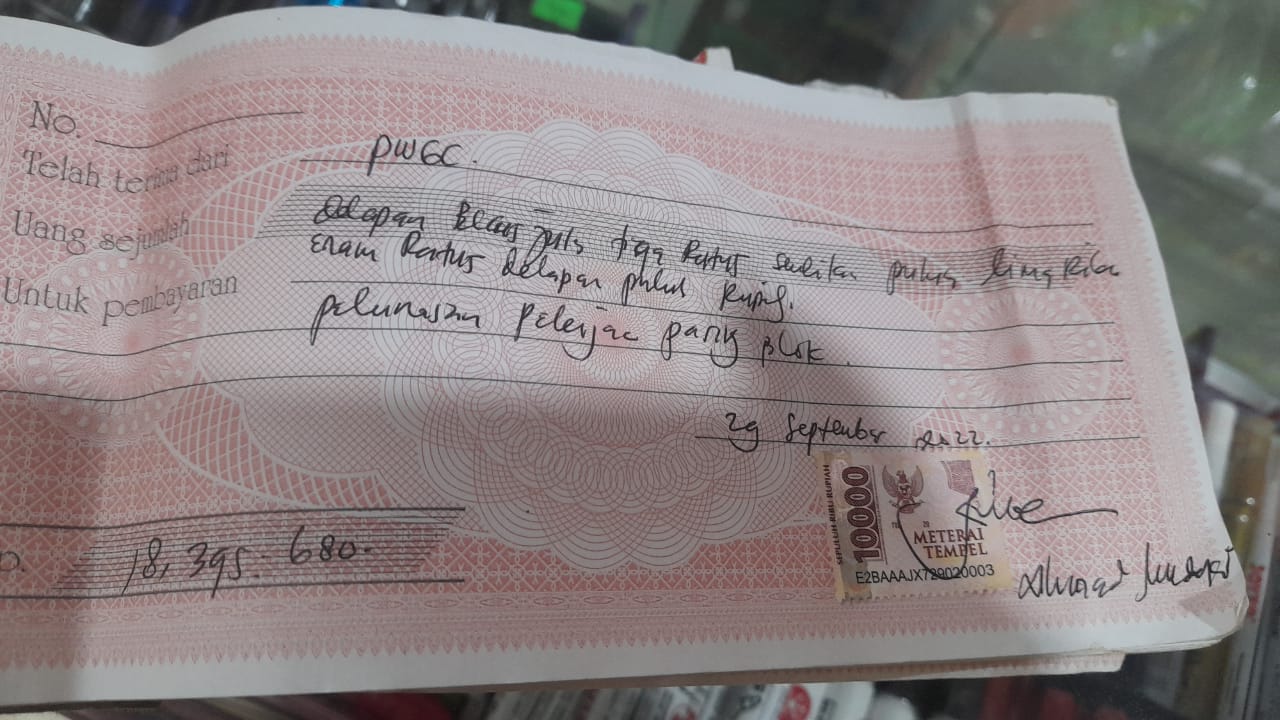 No.
Telah terima dari PWGC.
Uang sejumlah delapan Belas juta tiga Ratus sembilan puluh lima Ribu
enam Ratus delapan puluh Rupiah.
Untuk pembayaran pelunasan pekerjaan paving blok.
29 September 2022.
p. 18,395.680.
SEPULUH RIBU RUPIAH
10000
METERAI
TEMPEL
E2BAAAJX729020003
Ahmad